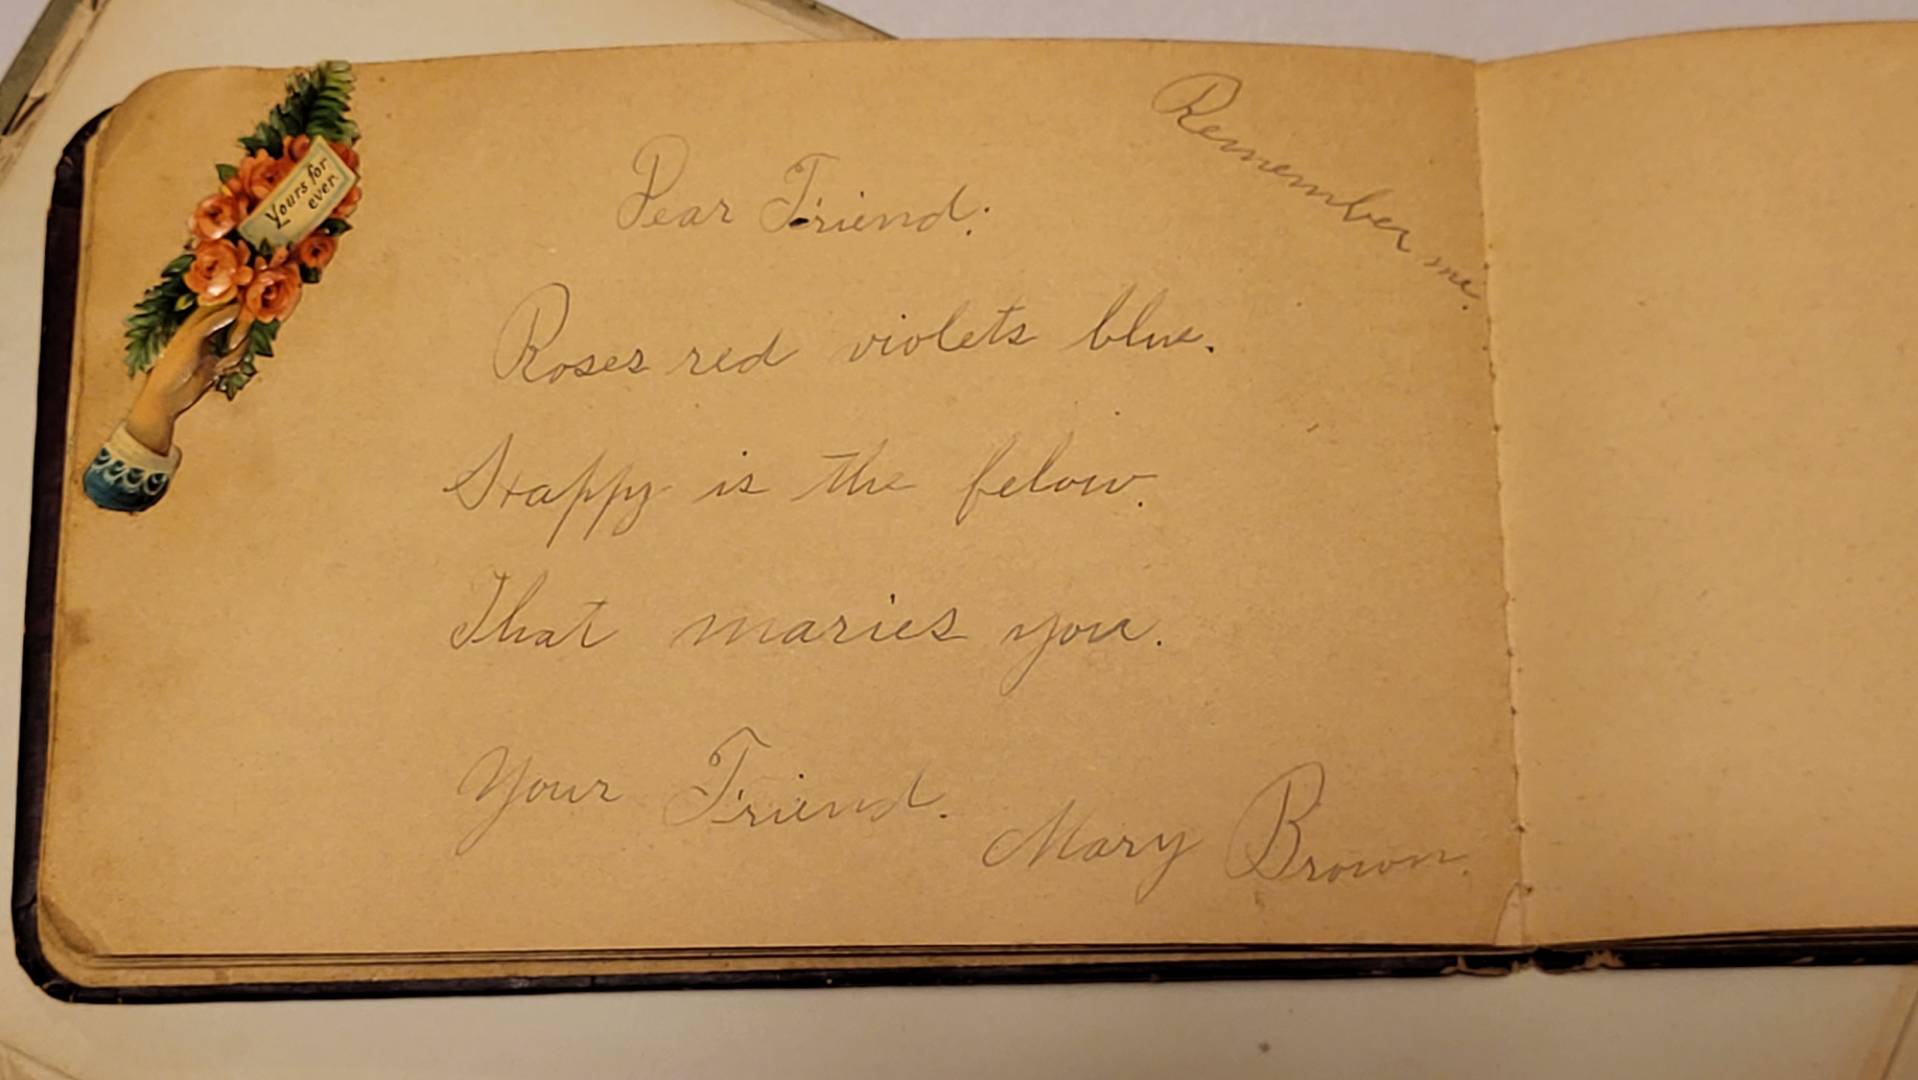 Yours for
ever.
Remember me.
Dear Friend.
Roses red violets blue.
Happy is the felow.
That maries you.
Your Friend.
Mary Brown.